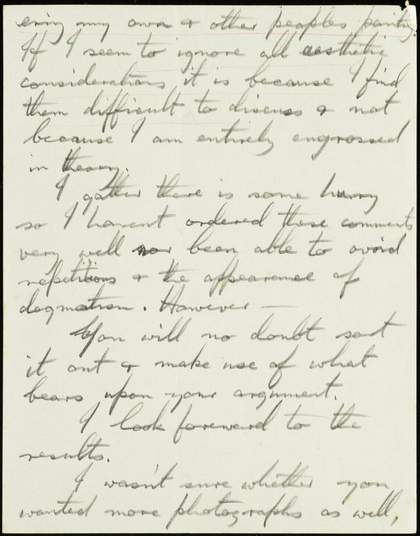 ering my own & other peoples painting.
If I seem to ignore all aesthetic
considerations it is because I find
them difficult to discuss & not
because I am entirely engrossed
in theory.
I gather there is some hurry
so I havent ordered these comments
very well nor been able to avoid
repetitions & the appearance of
dogmatism. However —
You will no doubt sort
it out & make use of what
bears upon your argument.
I look foreward to the
results.
I wasn't sure whether you
wanted more photographs as well,